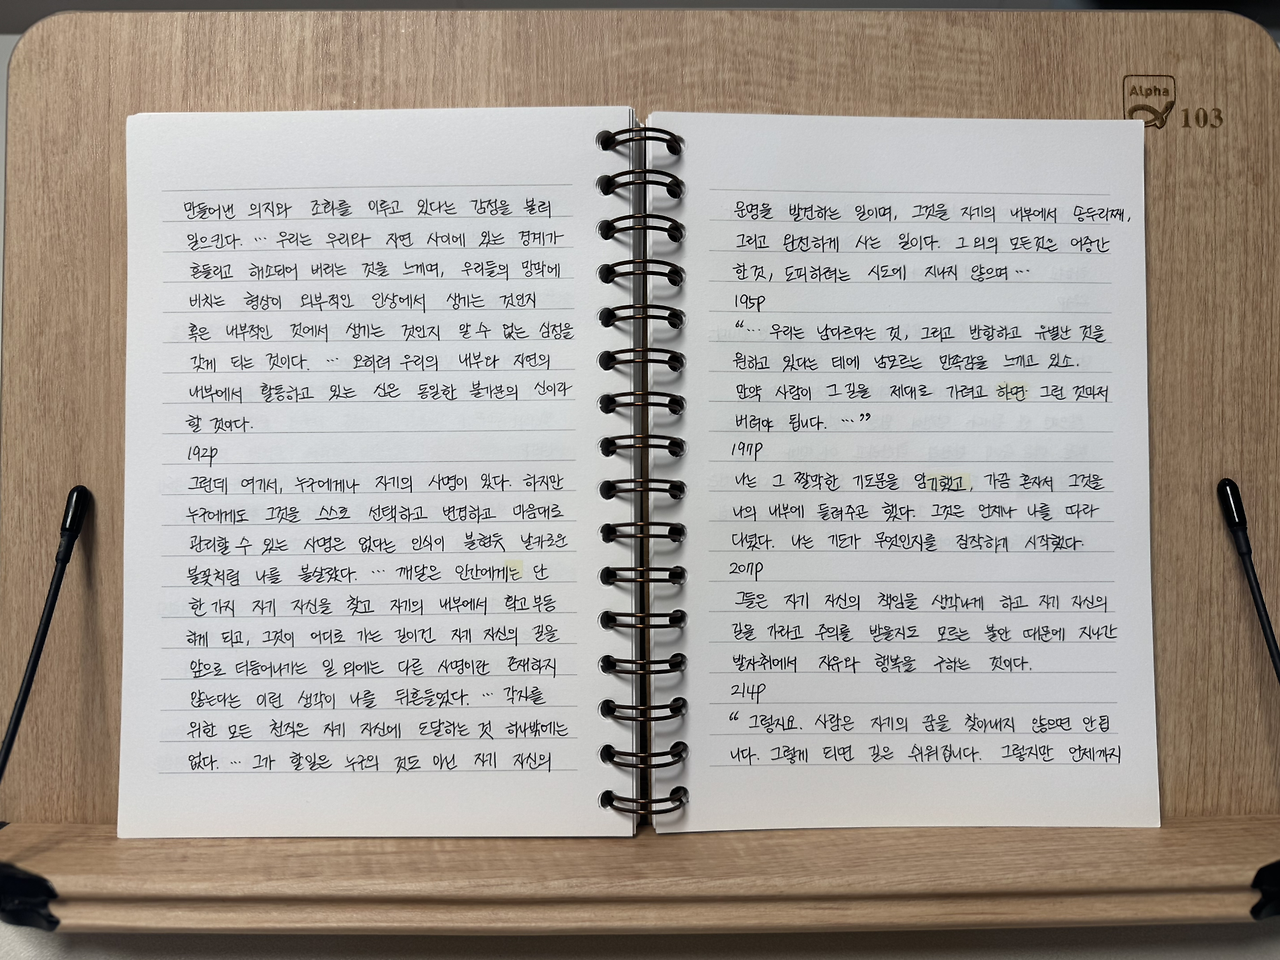 만들어낸 의지와 조화를 이루고 있다는 감정을 불러
일으킨다. … 우리는 우리와 자연 사이에 있는 경계가
흔들리고 해소되어 버리는 것을 느끼며, 우리들의 망막에
비치는 형상이 외부적인 인상에서 생기는 것인지
혹은 내부적인 것에서 생기는 것인지 알 수 없는 심정을
갖게 되는 것이다. … 오히려 우리의 내부와 자연의
내부에서 활동하고 있는 신은 동일한 불가분의 신이라
할 것이다.
192p
그런데 여기서, 누구에게나 자기의 사명이 있다. 하지만
누구에게도 그것을 스스로 선택하고 변경하고 마음대로
관리할 수 있는 사명은 없다는 인식이 불현듯 날카로운
불꽃처럼 나를 불살랐다. … 깨달은 인간에게는 단
한 가지 자기 자신을 찾고 자기의 내부에서 확고부동
하게 되고, 그것이 어디로 가는 길이건 자기 자신의 길을
앞으로 더듬어나가는 일 외에는 다른 사명이란 존재하지
않는다는 이런 생각이 나를 뒤흔들었다. … 각자를
위한 모든 천직은 자기 자신에 도달하는 것 하나밖에는
없다. … 그가 할일은 누구의 것도 아닌 자기 자신의
Alpha
103
운명을 발견하는 일이며, 그것을 자기의 내부에서 송두리째,
그리고 완전하게 사는 일이다. 그 외의 모든것은 어중간
한 것, 도피하려는 시도에 지나지 않으며 …
195p
“… 우리는 남다르다는 것, 그리고 반항하고 유별난 것을
원하고 있다는 데에 남모르는 만족감을 느끼고 있소.
만약 사람이 그 길을 제대로 가려고 하면 그런 것마저
버려야 됩니다. …”
197p
나는 그 짤막한 기도문을 암기했고, 가끔 혼자서 그것을
나의 내부에 들려주곤 했다. 그것은 언제나 나를 따라
다녔다. 나는 기도가 무엇인지를 짐작하게 시작했다.
207p
그들은 자기 자신의 책임을 생각나게 하고 자기 자신의
길을 가라고 주의를 받을지도 모르는 불안 때문에 지나간
발자취에서 자유와 행복을 구하는 것이다.
214p
“그렇지요. 사람은 자기의 꿈을 찾아내지 않으면 안 됩
니다. 그렇게 되면 길은 쉬워집니다. 그렇지만 언제까지